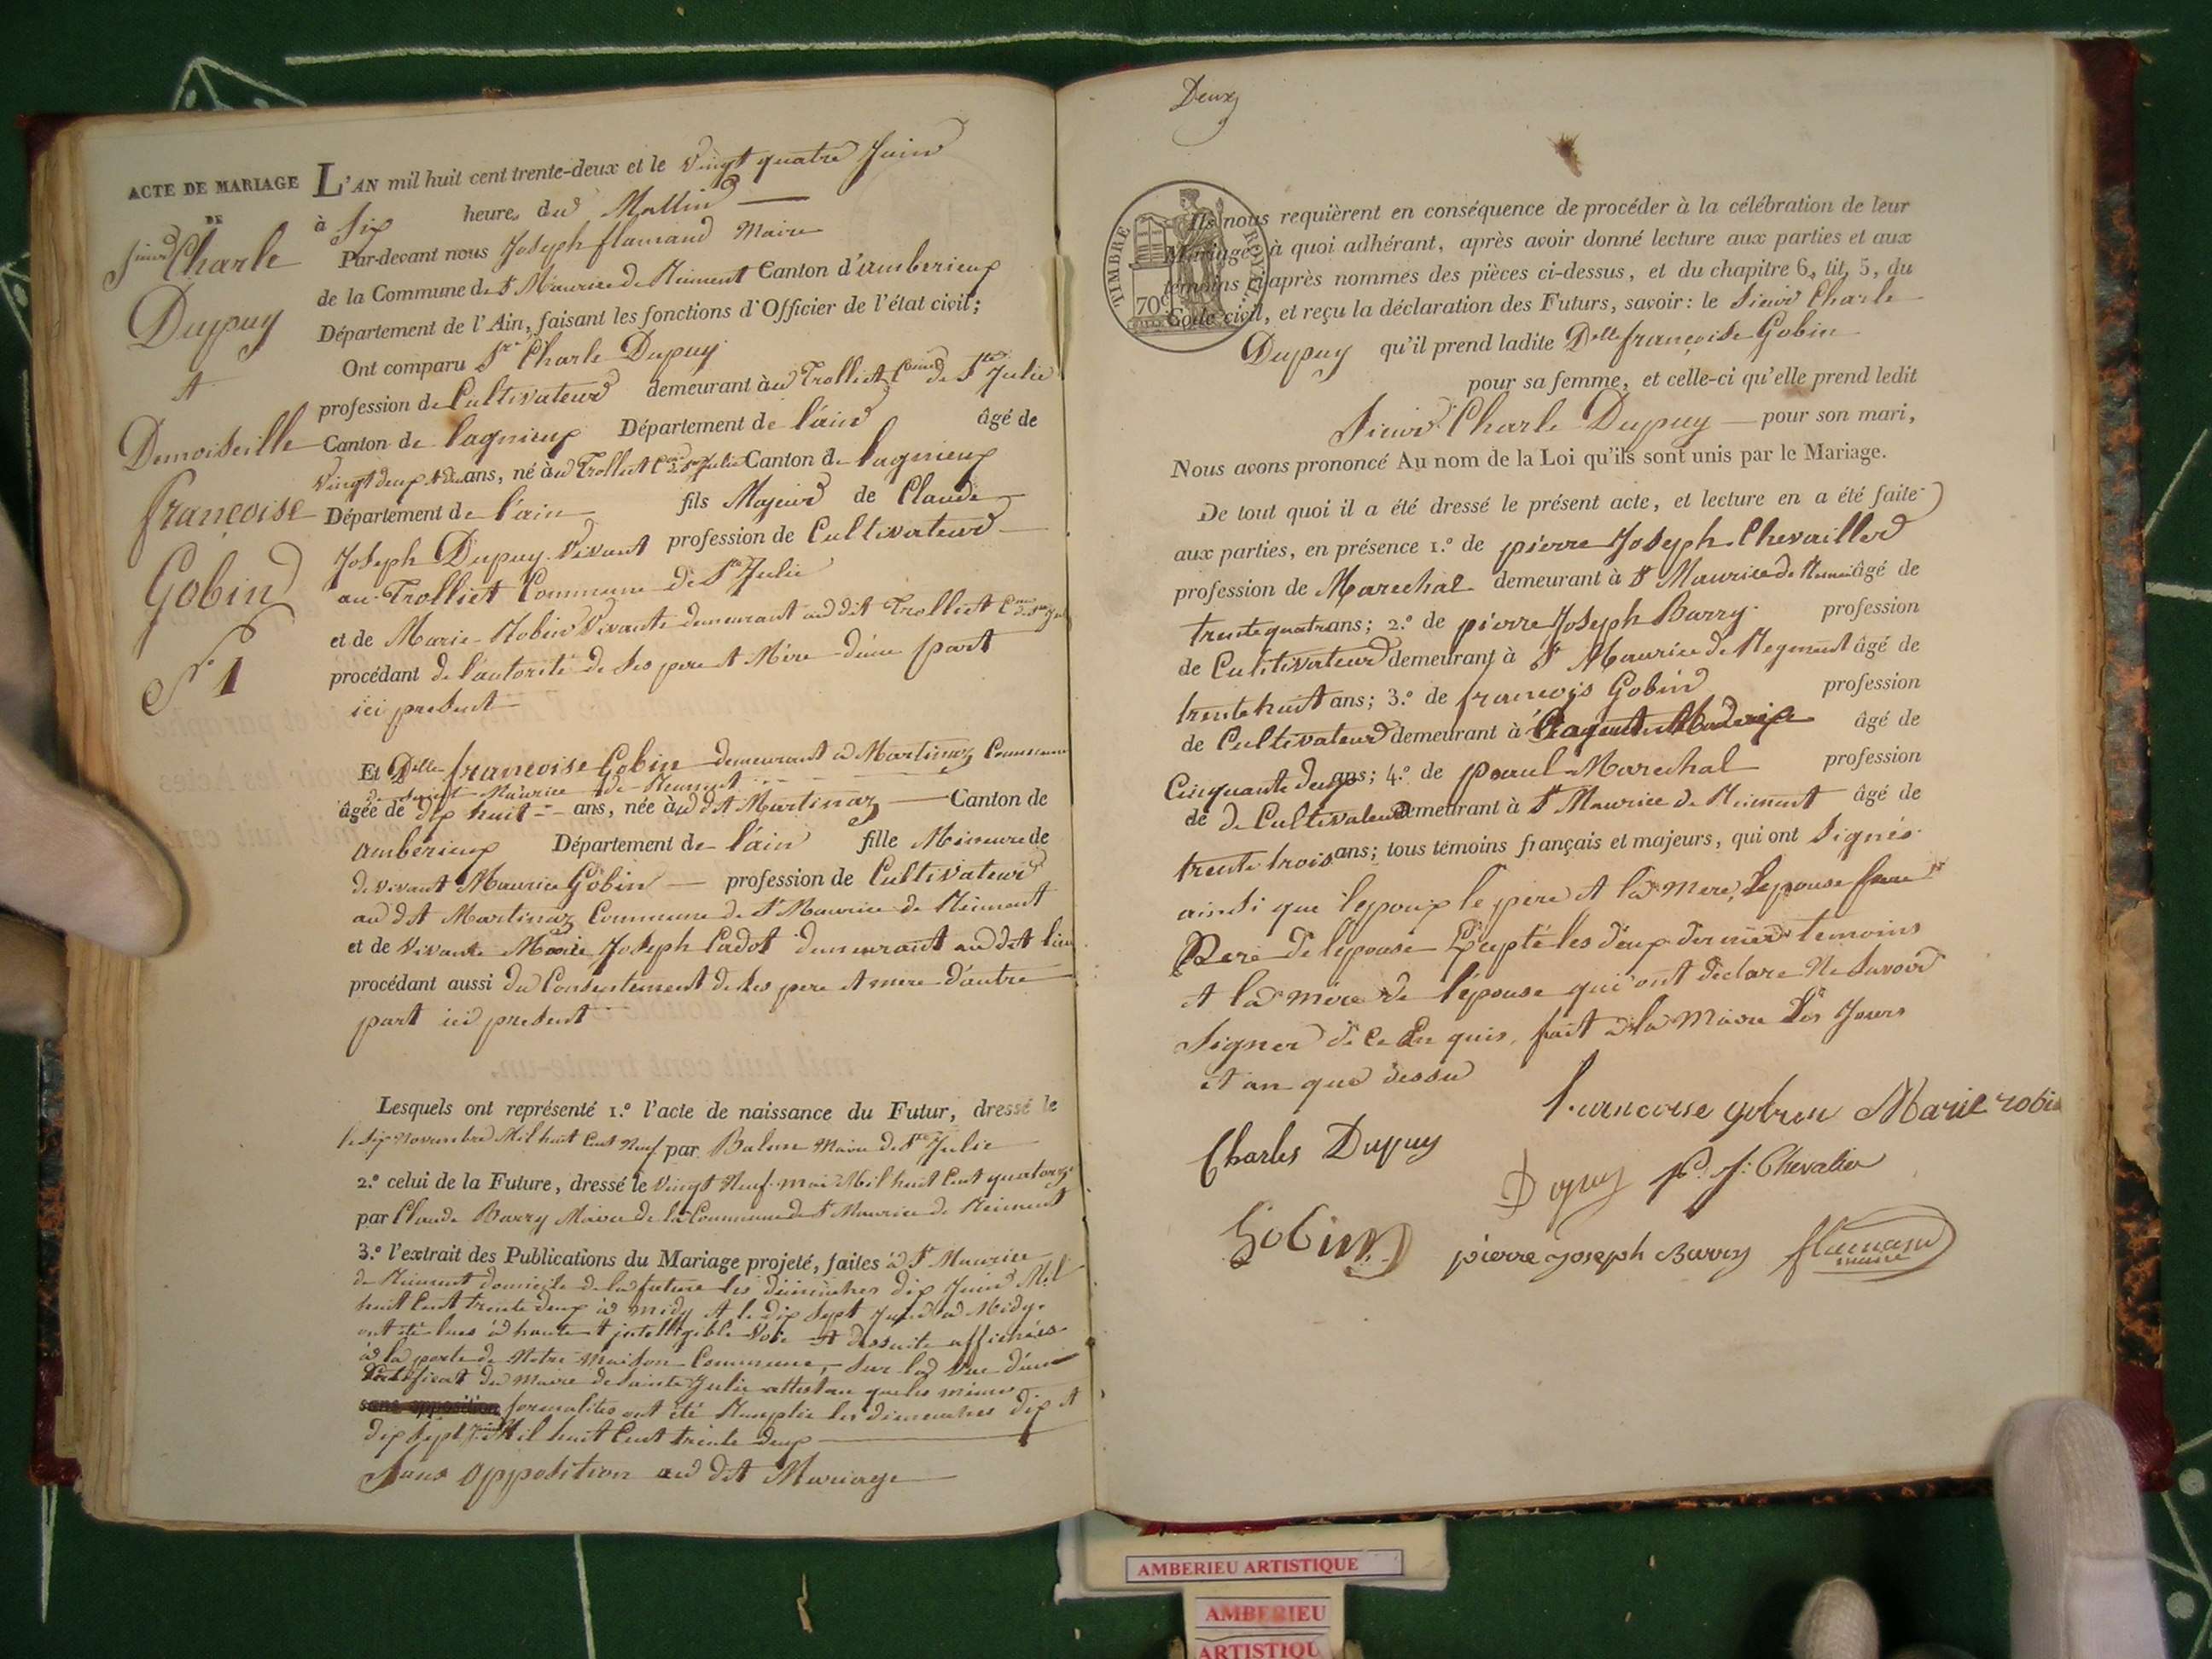 ACTE DE MARIAGE
DE
Sieur Charle
Dupuy
et
Demoiseille
françoise
Gobin
N° 1
L'AN mil huit cent trente-deux et le vingt quatre Juin
à Six heure du Mattin
Par-devant nous Joseph flamand Maire
de la Commune de St Maurice de Rément Canton d'amberieux
Département de l'Ain, faisant les fonctions d'Officier de l'état civil;
Ont comparu Sr Charle Dupuy
profession de Cultivateur demeurant au Trolliet Comne de Ste Julie
Canton de lagnieux Département de l'ain âgé de
vingt deux ans, né au Trolliet Cne de Ste Julie Canton de lagnieux
Département de l'ain fils Majeur de Claude
Joseph Dupuy vivant profession de Cultivateur
au Trolliet Commune de Ste Julie
et de Marie Robin vivante demeurant au dit Trolliet Cne de Ste Jul
procédant de l'autorité de ses pere et Mere d'une part
ici present
Et Delle françoise Gobin demeurant à Martinaz Commune
de Saint Maurice de Rement
âgée de dix huit ans, née au dit Martinaz Canton de
amberieux Département de l'ain fille Mineure de
de vivant Maurice Gobin profession de Cultivateur
au dit Martinaz Commune de St Maurice de Rément
et de vivante Marie Joseph Cadot demeurant au dit lieu
procédant aussi du Consentement de ses pere et mere d'autre
part ici present
Lesquels ont représenté 1.° l'acte de naissance du Futur, dressé le
le six novembre Mil huit Cent Neuf par Balme Maire de Ste Julie
2.° celui de la Future, dressé le vingt Neuf mai Mil huit Cent quatorze
par Claude Barry Maire de la Commune de St Maurice de Rément
3.° l'extrait des Publications du Mariage projeté, faites à St Maurice
de Rément domicile de la future les dimanches dix Juin Mil
huit Cent trente deux à midy et le dix Sept Juin à Midy
ont été lues à haute et intelligible Voie et dessuite affichées
à la porte de Notre Maison Commune, Sur la Vue d'un
Certificat du Maire de Sainte Julie attestan que les mêmes
sans opposition formalites ont été Remplie les dimanches dix et
dix Sept Juin Mil huit Cent trente deux
Sans opposition au dit Mariage
Deux
TIMBRE ROYAL
70c
Ils nous requièrent en conséquence de procéder à la célébration de leur
Mariage, à quoi adhérant, après avoir donné lecture aux parties et aux
témoins ci-après nommés des pièces ci-dessus, et du chapitre 6, tit, 5, du
Code civil, et reçu la déclaration des Futurs, savoir: le Sieur Charle
Dupuy qu'il prend ladite Delle françoise Gobin
pour sa femme, et celle-ci qu'elle prend ledit
Sieur Charle Dupuy pour son mari,
Nous avons prononcé Au nom de la Loi qu'ils sont unis par le Mariage.
De tout quoi il a été dressé le présent acte, et lecture en a été faite
aux parties, en présence 1.° de pierre Joseph Chevailler
profession de Marechal demeurant à St Maurice de Rément âgé de
trente quatre ans; 2.° de pierre Joseph Barry profession
de Cultivateur demeurant à St Maurice de Rement âgé de
trente huit ans; 3.° de françois Gobin profession
de Cultivateur demeurant à âgé de
Cinquante deux ans; 4.° de paul Marechal profession
de de Cultivateur demeurant à St Maurice de Rément âgé de
trente trois ans; tous témoins français et majeurs, qui ont Signés
ainsi que l'epoux le pere et la mere, l'epouse
Pere de l'epouse Exepté les deux dernier temoins
et la mere de l'épouse qui ont declare Ne Savoir
Signer de ce En quis, fait à la Mairie les Jours
et an que dessu
francoise gobin Marie robin
Charles Dupuy
Dupuy p. J. Chevalier
Gobin pierre Joseph Barry flamand
maire
AMBERIEU ARTISTIQUE
AMBERIEU
ARTISTIQU